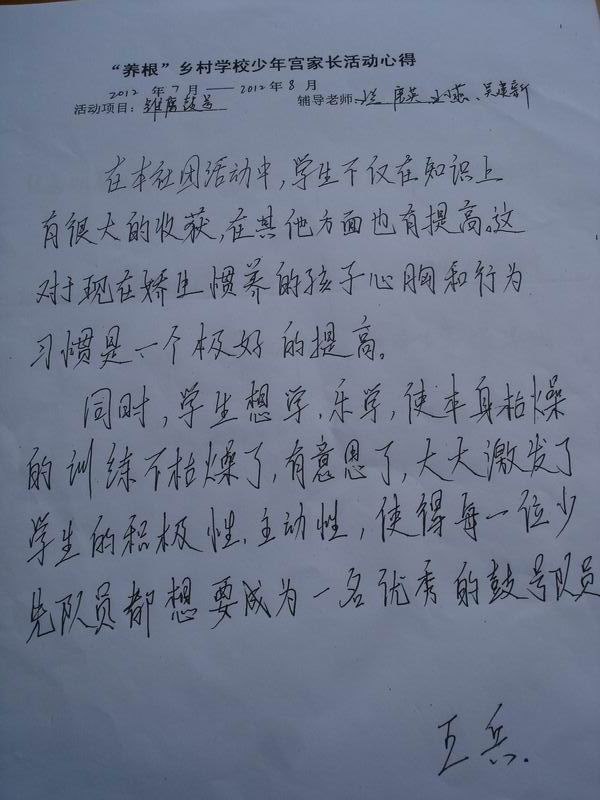 “养根”乡村学校少年宫家长活动心得
2012 年 7 月 —— 2012 年 8 月
活动项目: 鼓号 辅导老师
在本社团活动中,学生不仅在知识上
有很大的收获,在其他方面也有提高。这
对于现在娇生惯养的孩子心胸和行为
习惯是一个极好的提高。
同时,学生想学、乐学,使本身枯燥
的训练不枯燥了,有意思了,大大激发了
学生的积极性、主动性,使得每一位少
先队员都想要成为一名优秀的鼓号队员
王兵.